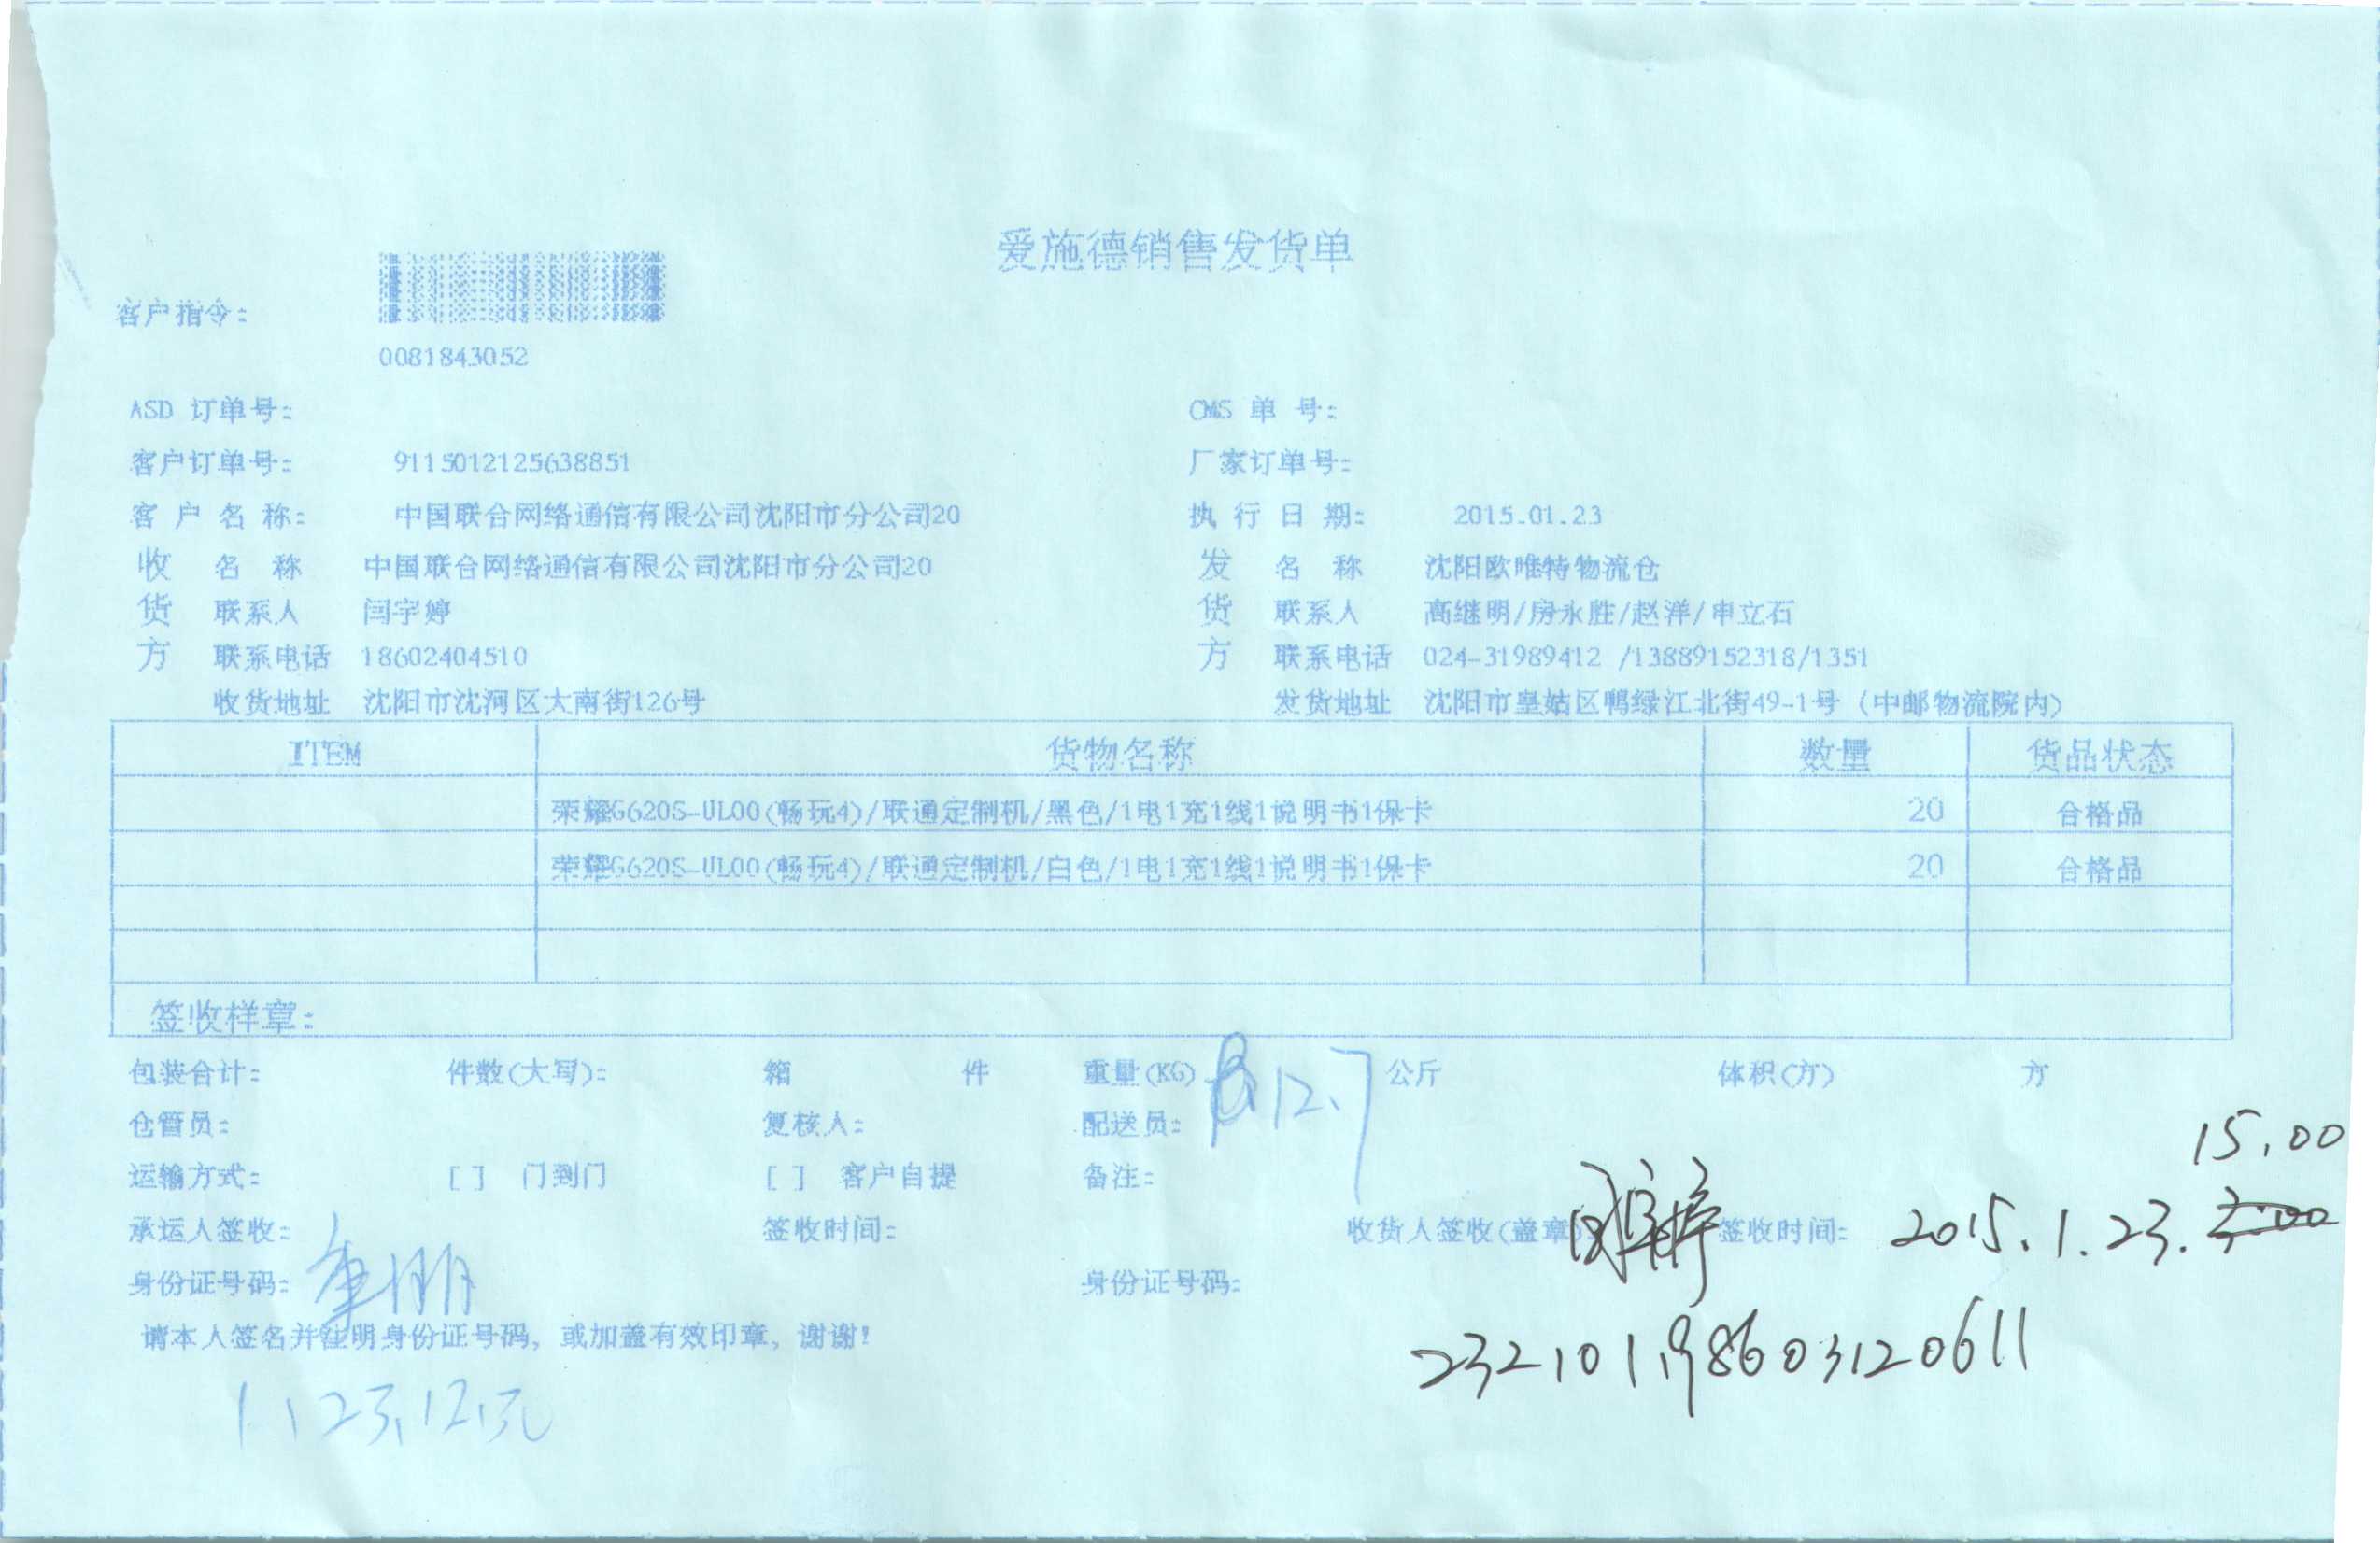 爱施德销售发货单
客户指令:
0081843052
ASD 订单号: CMS 单 号:
客户订单号: 9115012125638851 厂家订单号:
客 户 名 称: 中国联合网络通信有限公司沈阳市分公司20 执 行 日 期: 2015.01.23
收 名 称 中国联合网络通信有限公司沈阳市分公司20 发 名 称 沈阳欧唯特物流仓
货 联系人 闫宇婷 货 联系人 高继明/房永胜/赵洋/申立石
方 联系电话 18602404510 方 联系电话 024-31989412 /13889152318/1351
收货地址 沈阳市沈河区大南街126号 发货地址 沈阳市皇姑区鸭绿江北街49-1号 (中邮物流院内)
ITEM 货物名称 数量 货品状态
荣耀G620S-UL00(畅玩4)/联通定制机/黑色/1电1充1线1说明书1保卡 20 合格品
荣耀G620S-UL00(畅玩4)/联通定制机/白色/1电1充1线1说明书1保卡 20 合格品
签收样章:
包装合计: 件数(大写): 箱 件 重量(KG) 12.7 公斤 体积(方) 方
仓管员: 复核人: 配送员:
15.00
运输方式: [ ] 门到门 [ ] 客户自提 备注:
承运人签收: 签收时间: 收货人签收(盖章) 闫宇婷 签收时间: 2015.1.23.
身份证号码: 身份证号码:
232101198603120611
请本人签名并注明身份证号码, 或加盖有效印章, 谢谢!